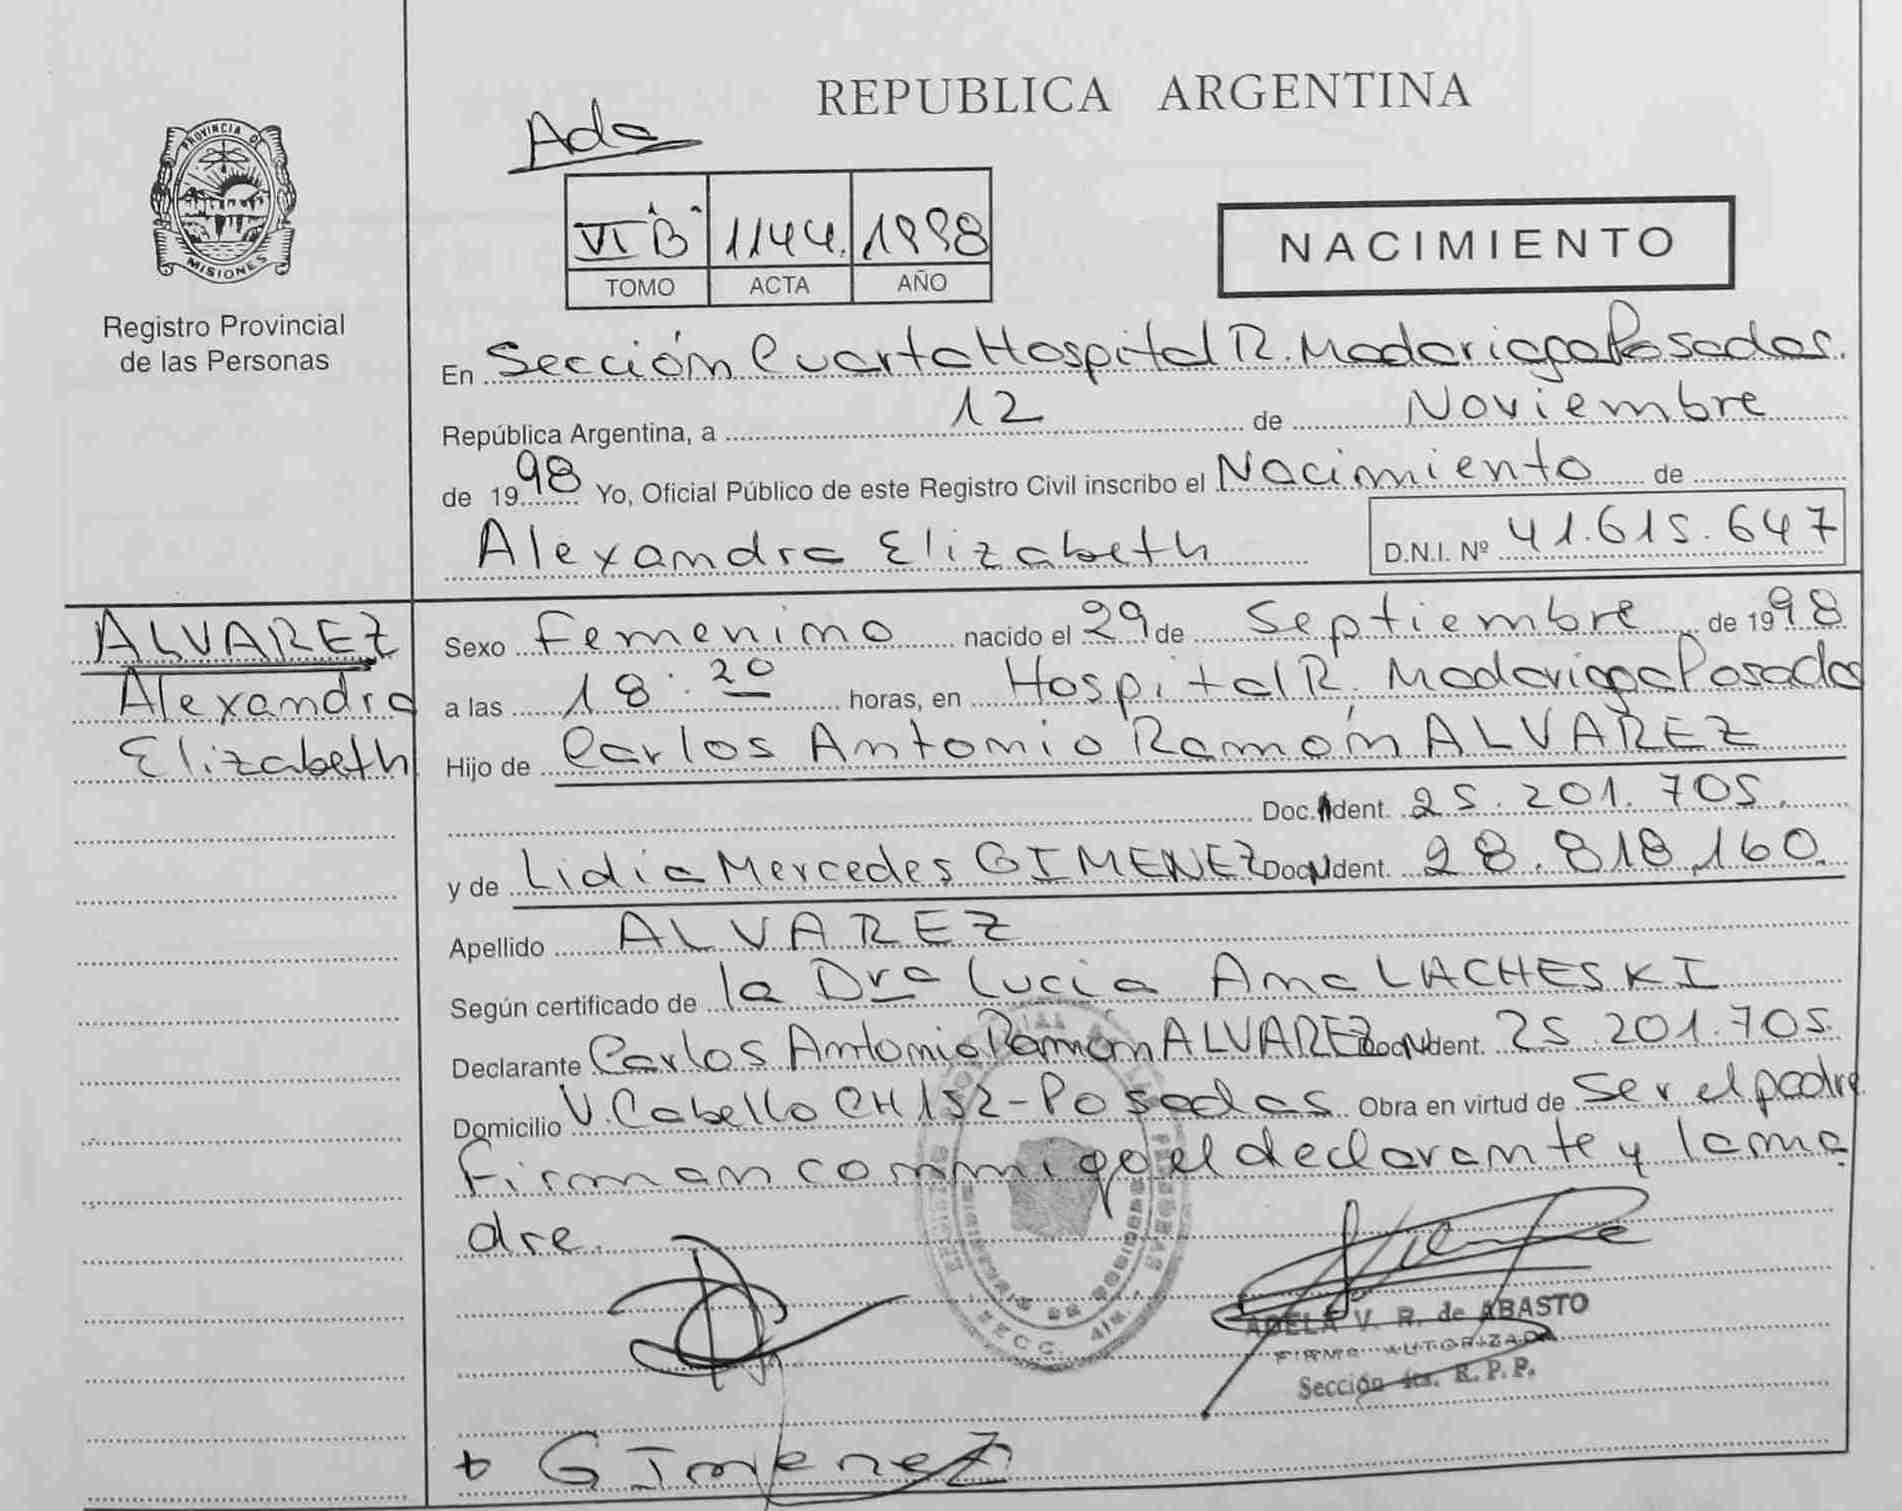 REPUBLICA ARGENTINA
Ada
PROVINCIA DE
MISIONES
VI "B" 1144. 1998
TOMO ACTA AÑO
NACIMIENTO
Registro Provincial
de las Personas
En Sección Cuarta Hospital R. Madariaga Posadas.
República Argentina, a 12 de Noviembre
de 1998 Yo, Oficial Público de este Registro Civil inscribo el Nacimiento de
Alexandra Elizabeth D.N.I. Nº 41.615.647
ALVAREZ
Alexandra
Elizabeth
Sexo Femenino nacido el 29 de Septiembre de 1998
a las 18:20 horas, en Hospital R. Madariaga Posadas
Hijo de Carlos Antonio Ramón ALVAREZ
Doc. Ident. 25.201.705.
y de Lidia Mercedes GIMENEZ Doc. Ident. 28.818.160.
Apellido ALVAREZ
Según certificado de la Dra Lucia Ana LACHESKI
Declarante Carlos Antonio Ramón ALVAREZ Doc. Ident. 25.201.705.
Domicilio V. Cabello CH 152 - Posadas Obra en virtud de Ser el padre
Firman conmigo el declarante y la ma
dre.
ADELA V. R. de ABASTO
FIRMA AUTORIZADA
Sección 4ta. R.P.P.
GImenez